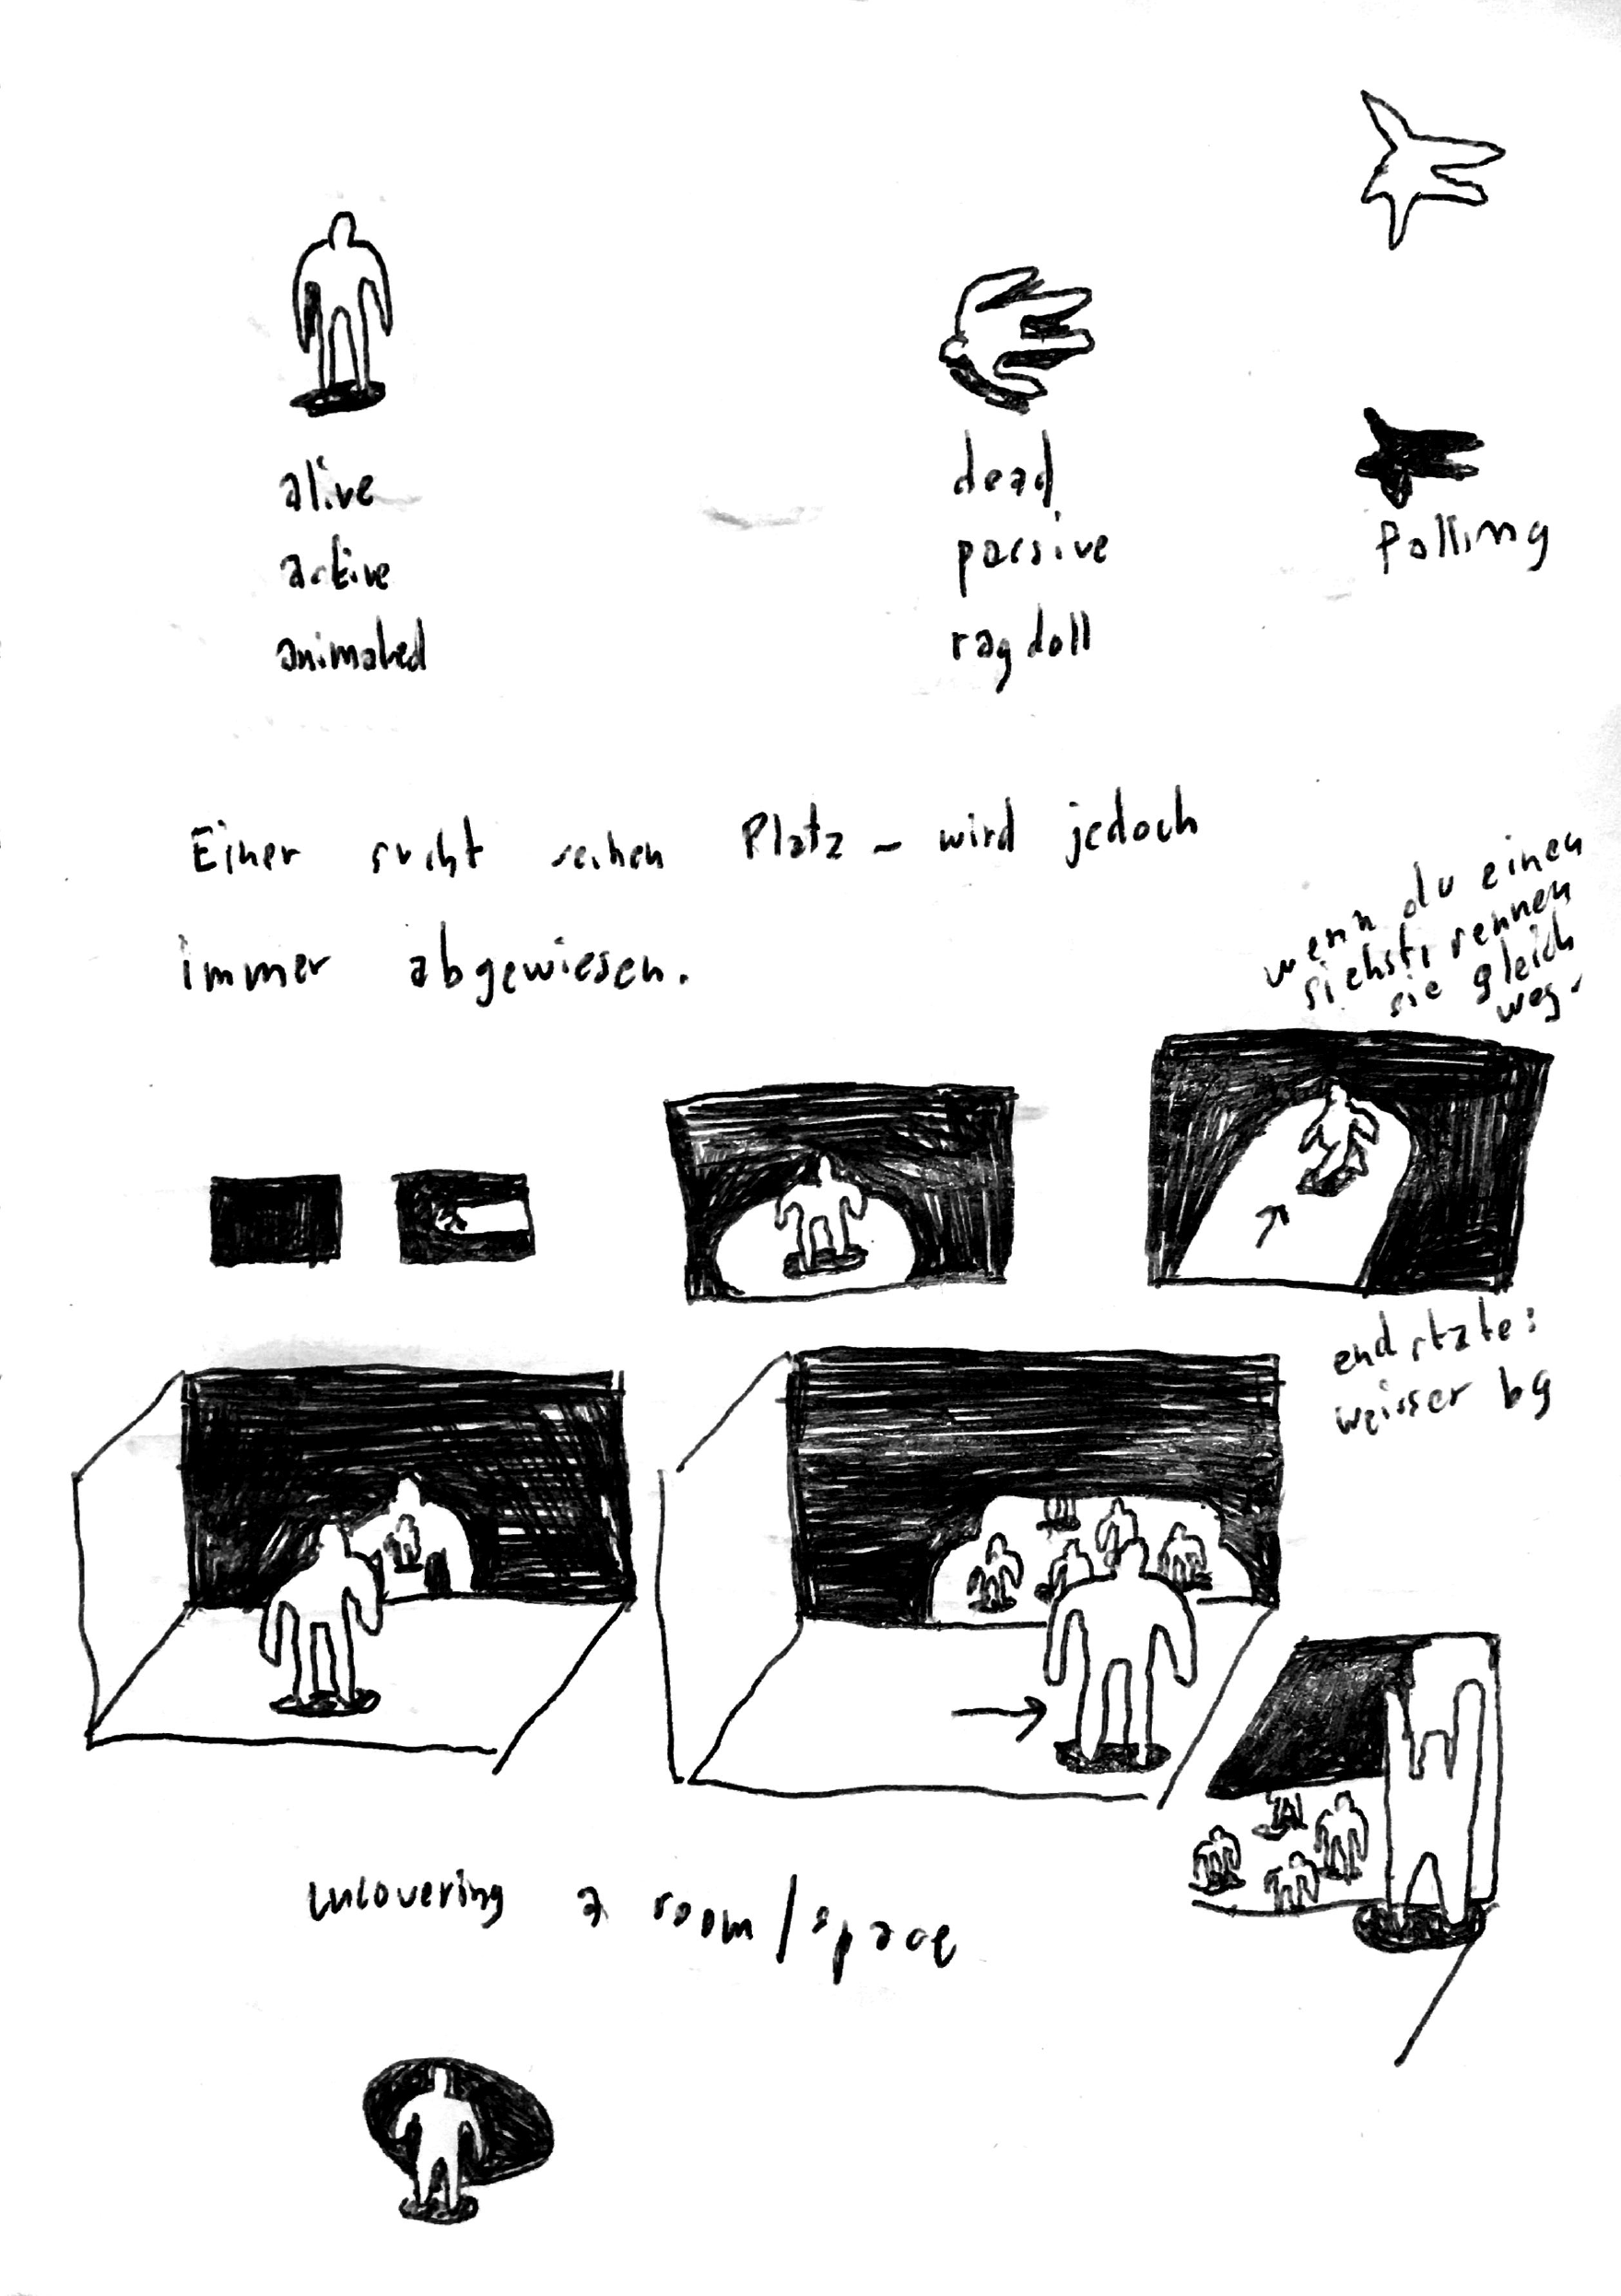 alive
active
animated
dead
passive
ragdoll
falling
Einer sucht seinen Platz – wird jedoch
immer abgewiesen.
wenn du einen
siehst, rennen
sie gleich
weg.
end state:
weisser bg
uncovering a room/space